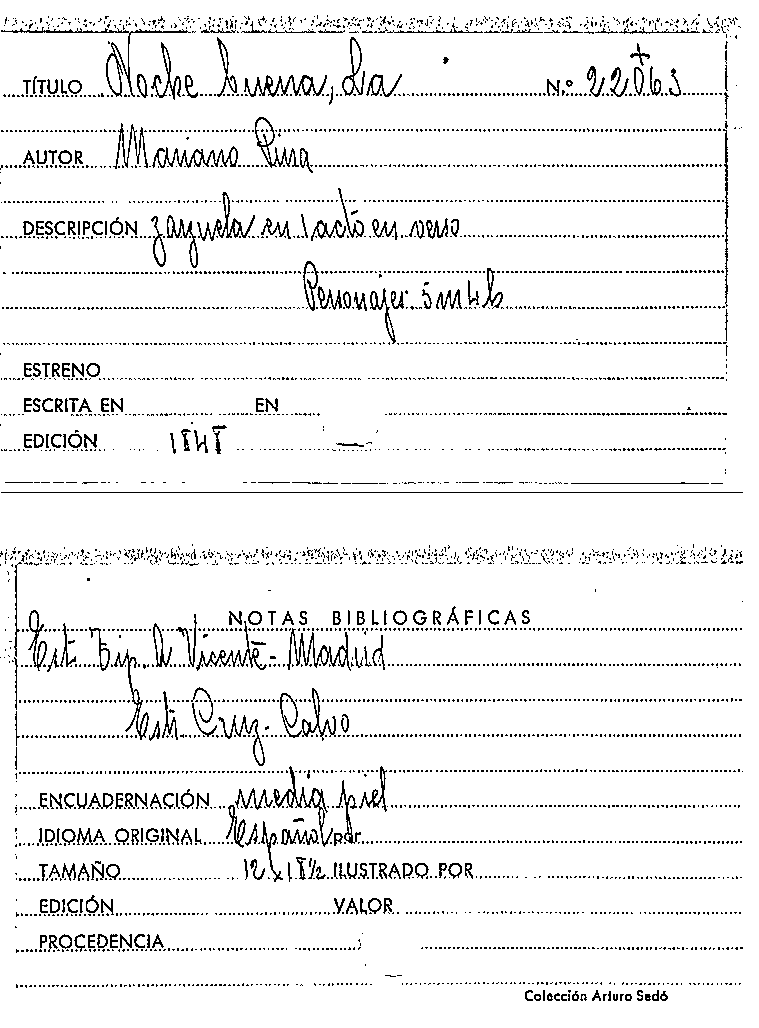 TÍTULO Noche buena, La N.º 22063
AUTOR Mariano Pina
DESCRIPCIÓN zarzuela en 1 acto en verso
Personajes 5 m 4 h
ESTRENO
ESCRITA EN EN
EDICIÓN 1848
NOTAS BIBLIOGRÁFICAS
Est. Tip. de Vicente - Madrid
Est. Cruz - Calvo
ENCUADERNACIÓN media piel
IDIOMA ORIGINAL Español por
TAMAÑO 12 x 18½ ILUSTRADO POR
EDICIÓN VALOR
PROCEDENCIA
Colección Arturo Sedó